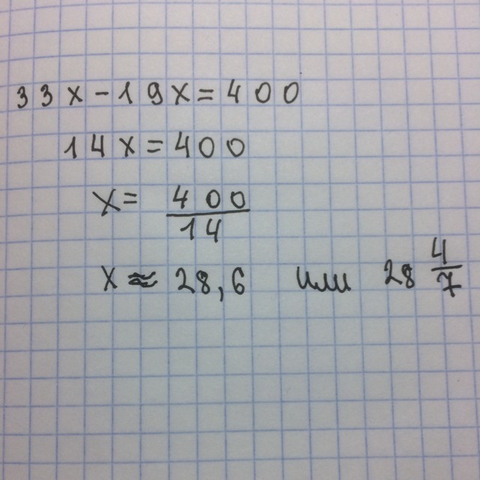 33x-19x=400
14x=400
x= 400/14
x≈28,6 или 28 4/7